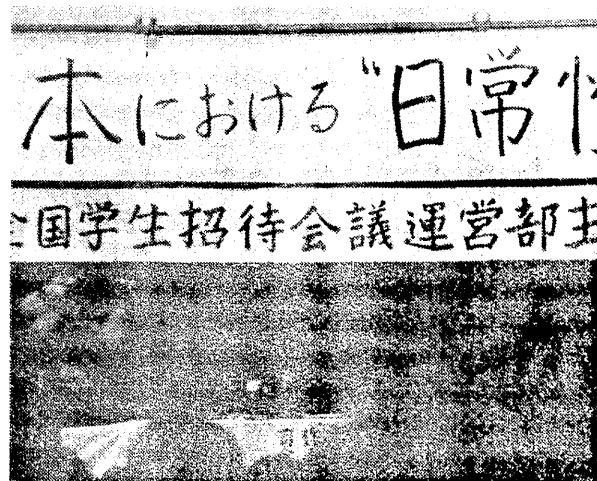 本における"日常性
全国学生招待会議運営部主